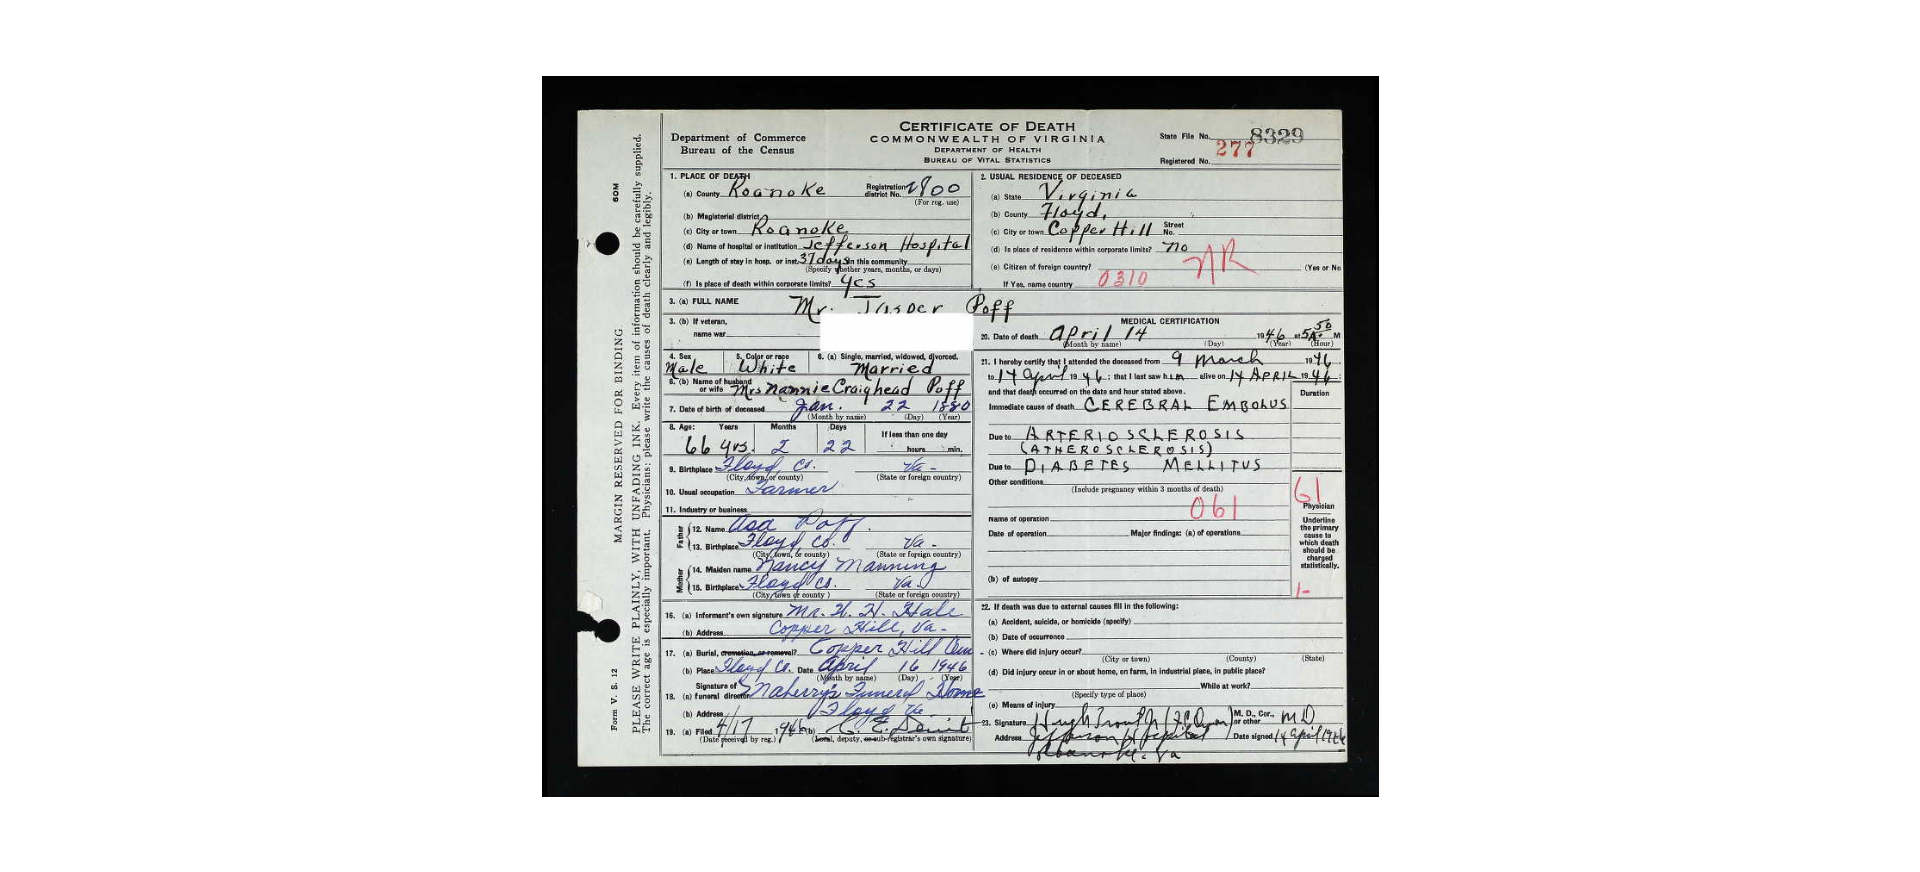 CERTIFICATE OF DEATH
COMMONWEALTH OF VIRGINIA
DEPARTMENT OF HEALTH
BUREAU OF VITAL STATISTICS
Department of Commerce
Bureau of the Census
State File No. 8329
277
Registered No.
60M
MARGIN RESERVED FOR BINDING
Form V. S. 12
PLEASE WRITE PLAINLY, WITH UNFADING INK. Every item of information should be carefully supplied.
The correct age is especially important. Physicians: please write the causes of death clearly and legibly.
1. PLACE OF DEATH
(a) County Roanoke Registration district No. 2800
(For reg. use)
(b) Magisterial district
(c) City or town Roanoke
(d) Name of hospital or institution Jefferson Hospital
(e) Length of stay in hosp. or inst. 37 days In this community
(Specify whether years, months, or days)
(f) Is place of death within corporate limits? yes
2. USUAL RESIDENCE OF DECEASED
(a) State Virginia
(b) County Floyd,
(c) City or town Copper Hill Street No.
(d) Is place of residence within corporate limits? no
NR
(e) Citizen of foreign country? (Yes or No
If Yes, name country 0310
3. (a) FULL NAME Mr. Jasper Poff
3. (b) If veteran,
name war
4. Sex Male
5. Color or race White
6. (a) Single, married, widowed, divorced. Married
6. (b) Name of husband or wife Mrs Nannie Craighead Poff
7. Date of birth of deceased Jan. 22 1880
(Month by name) (Day) (Year)
8. Age: Years Months Days If less than one day
66 yrs. 2 22 hours min.
9. Birthplace Floyd Co. Va-
(City, town, or county) (State or foreign country)
10. Usual occupation Farmer
11. Industry or business
Father
12. Name Asa Poff.
13. Birthplace Floyd Co. Va-
(City, town, or county) (State or foreign country)
Mother
14. Maiden name Nancy Manning
15. Birthplace Floyd Co. Va.
(City, town or county) (State or foreign country)
16. (a) Informant's own signature Mr. H. H. Hale
(b) Address Copper Hill, Va-
17. (a) Burial, cremation, or removal? Copper Hill Cem
(b) Place Floyd Co. Date April 16 1946
(Month by name) (Day) (Year)
18. Signature of (a) funeral director Maberry's Funeral Home
(b) Address Floyd Va
19. (a) Filed 4/17 1946 (b)
(Date received by reg.) (Local, deputy, or sub-registrar's own signature)
MEDICAL CERTIFICATION
20. Date of death April 14 1946 at 5 50 A. M
(Month by name) (Day) (Year) (Hour)
21. I hereby certify that I attended the deceased from 9 March 1946
to 14 April 1946; that I last saw him alive on 14 APRIL 1946
and that death occurred on the date and hour stated above. Duration
Immediate cause of death CEREBRAL EMBOLUS
Due to ARTERIOSCLEROSIS
(ATHEROSCLEROSIS)
Due to DIABETES MELLITUS
Other conditions
(Include pregnancy within 3 months of death)
61
061
Name of operation
Date of operation Major findings: (a) of operations
(b) of autopsy
Physician
Underline
the primary
cause to
which death
should be
charged
statistically.
1-
22. If death was due to external causes fill in the following:
(a) Accident, suicide, or homicide (specify)
(b) Date of occurrence
(c) Where did injury occur?
(City or town) (County) (State)
(d) Did injury occur in or about home, on farm, in industrial place, in public place?
While at work?
(Specify type of place)
(e) Means of injury
23. Signature Hugh Trout Jr M. D., Cor., or other MD
Address Jefferson Hospital Date signed 14 April 1946
Roanoke. Va